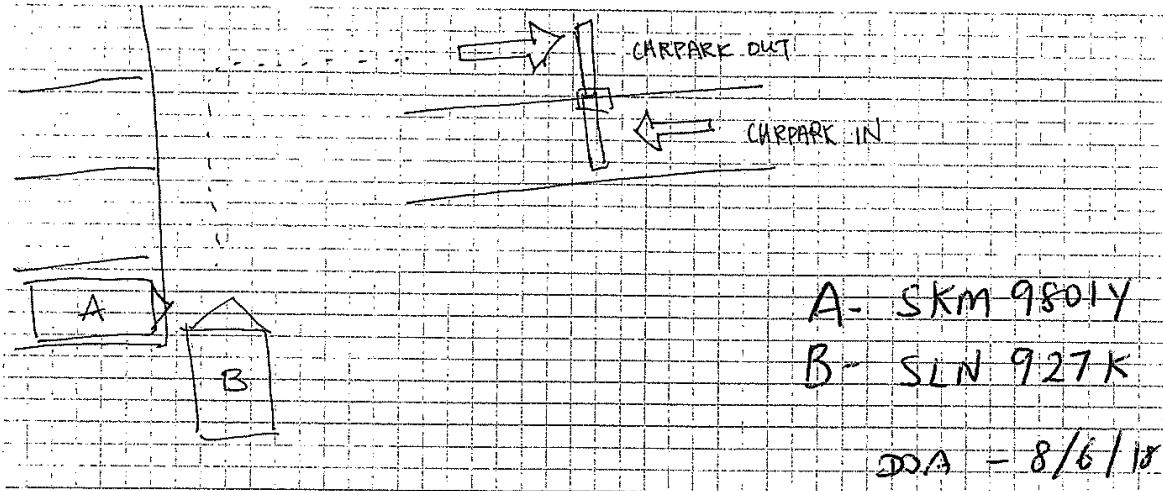 CARPARK OUT
CARPARK IN
A
B
A- SKM 9801Y
B- SLN 927K
DOA - 8/6/18